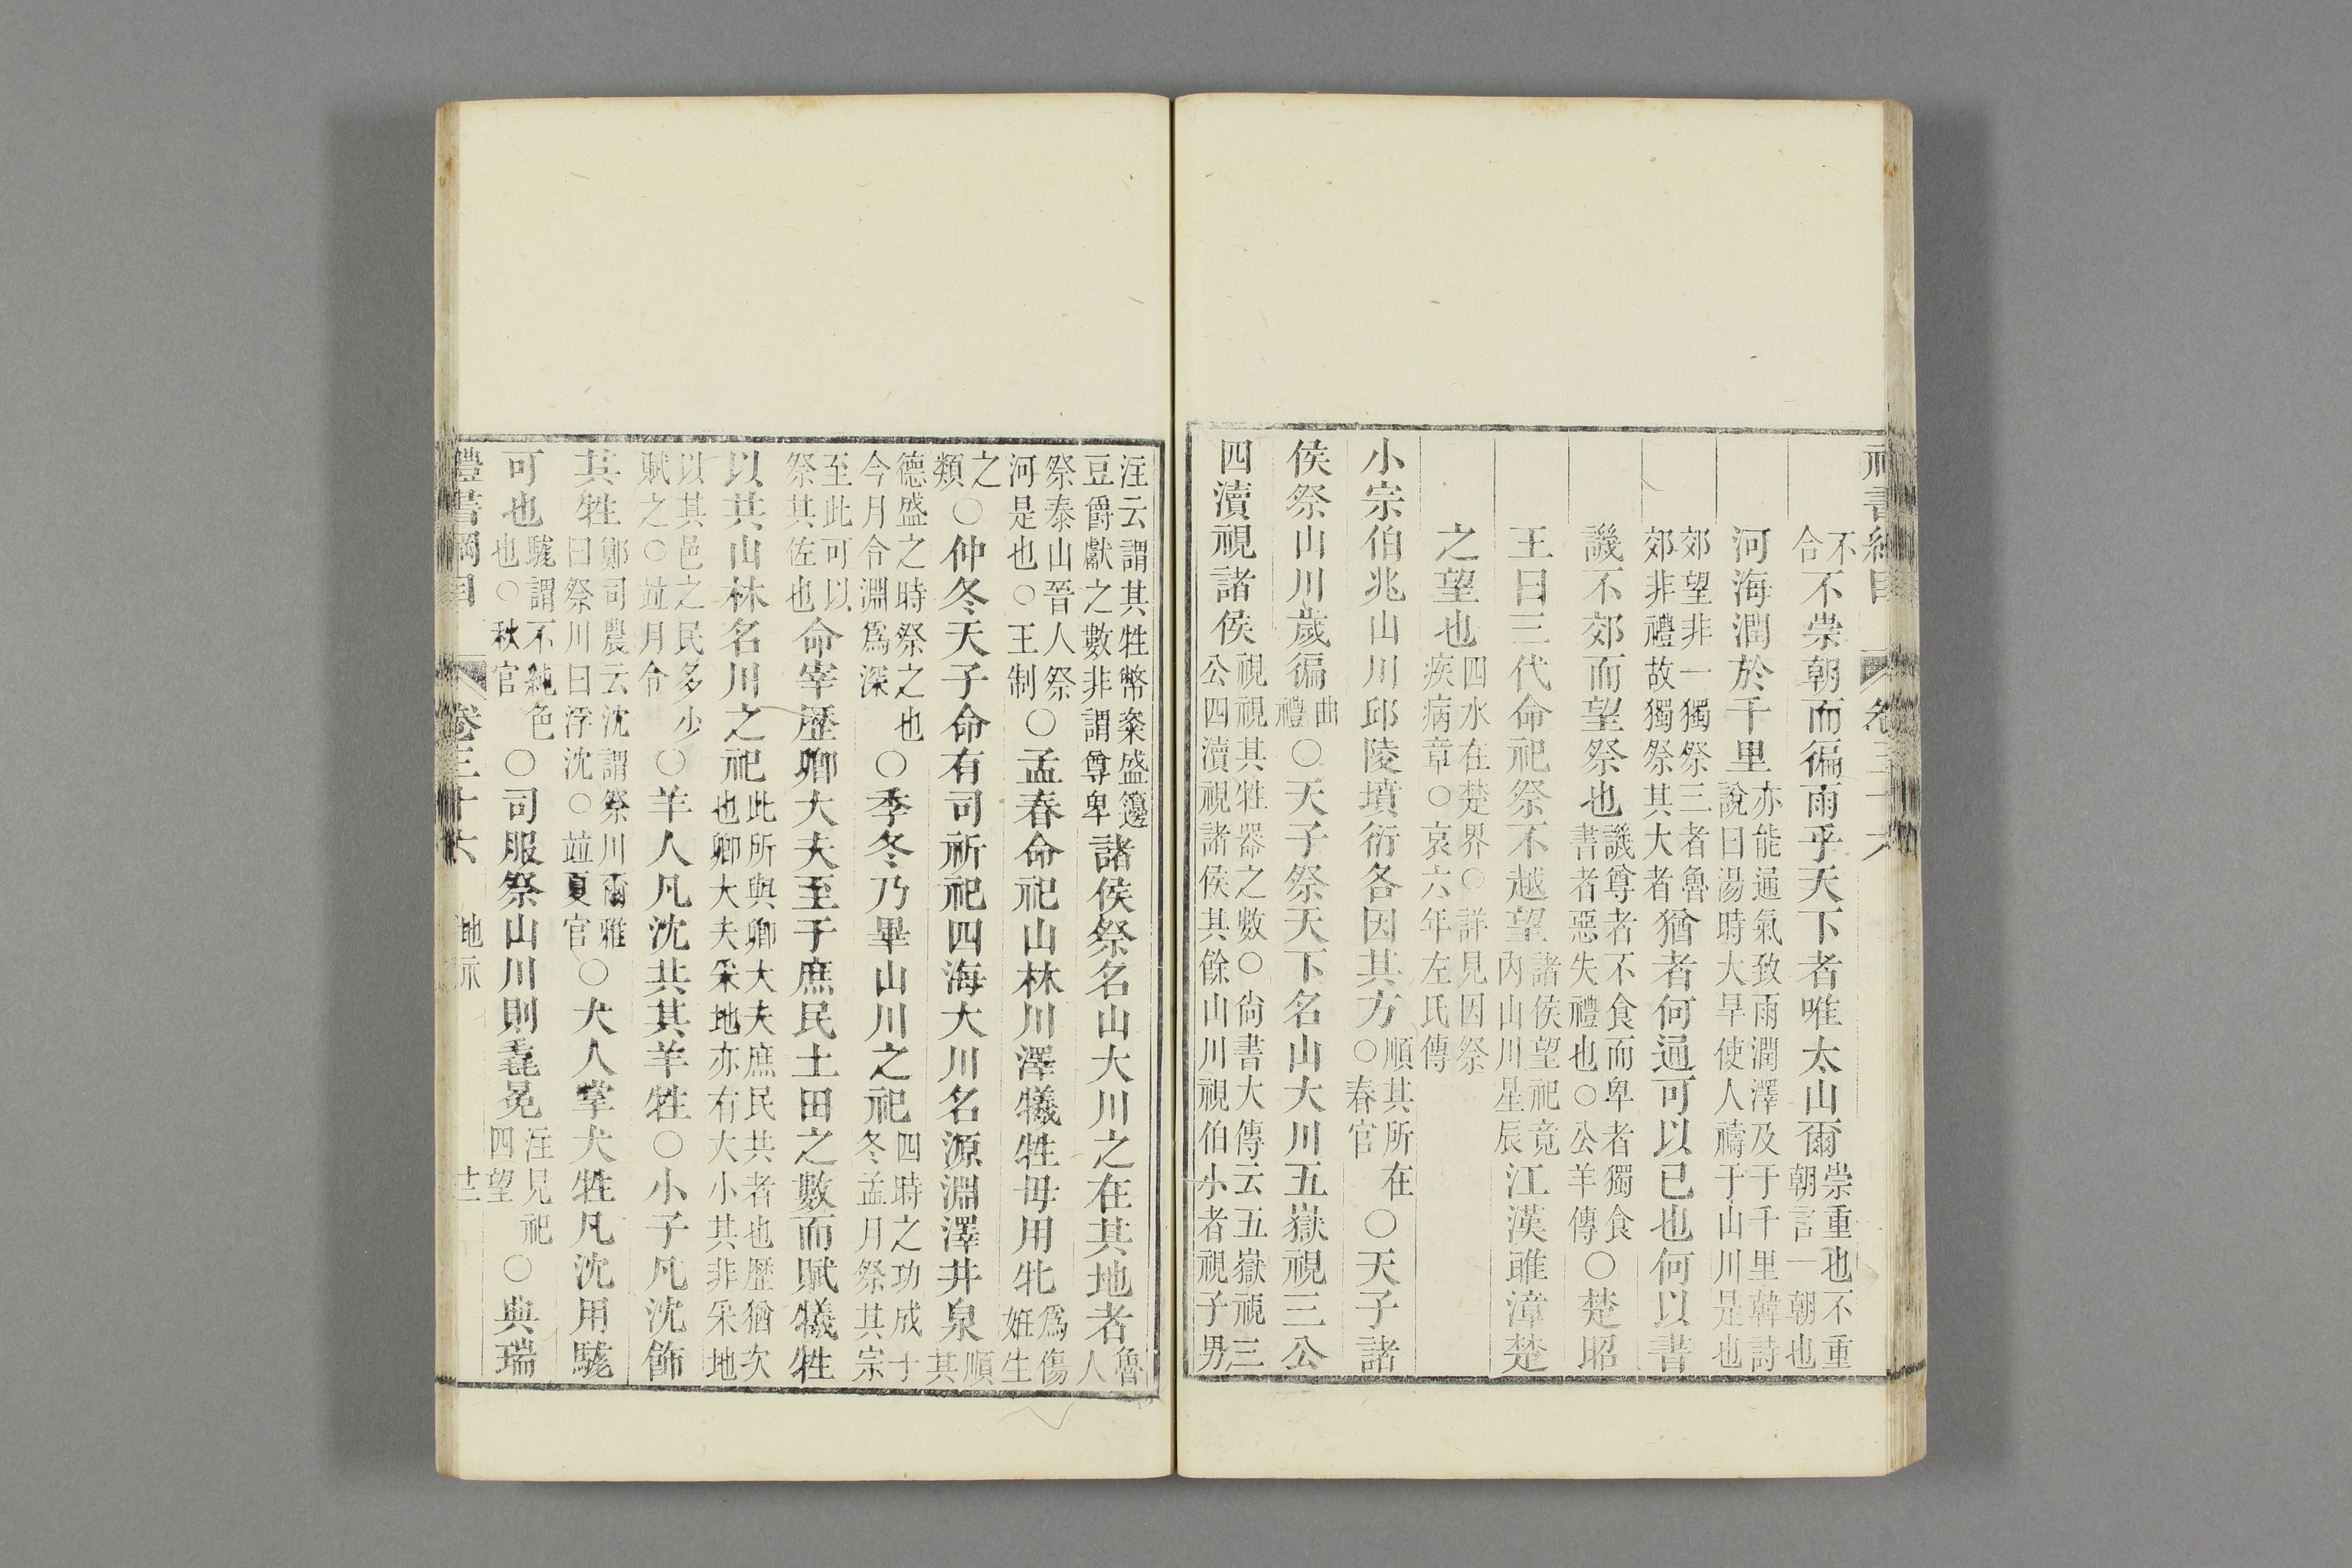 不
合不崇朝而徧雨乎天下者唯太山爾崇重也不重朝言一朝也
河海潤於千里亦能通氣致雨潤澤及于千里韓詩說曰湯時大旱使人禱于山川是也
郊望非一獨祭三者魯郊非禮故獨祭其大者猶者何通可以已也何以書
譏不郊而望祭也譏尊者不食而卑者獨食書者惡失禮也○公羊傳○楚昭
王曰三代命祀祭不越望諸侯望祀竟內山川星辰江漢雎漳楚
之望也四水在楚界○詳見因祭疾病章○哀六年左氏傳
小宗伯兆山川邱陵墳衍各因其方順其所在○春官○天子諸
侯祭山川歲徧曲禮○天子祭天下名山大川五嶽視三公
四瀆視諸侯視視其牲器之數○尙書大傳云五嶽視三公四瀆視諸侯其餘山川視伯小者視子男
注云謂其牲幣粢盛籩豆爵獻之數非謂尊卑諸侯祭名山大川之在其地者魯人
祭泰山晉人祭河是也○王制○孟春命祀山林川澤犧牲毋用牝爲傷姙生
之類○仲冬天子命有司祈祀四海大川名源淵澤井泉順其
德盛之時祭之也今月令淵爲深○季冬乃畢山川之祀四時之功成于冬孟月祭其宗
至此可以祭其佐也命宰歷卿大夫至于庶民土田之數而賦犧牲
以共山林名川之祀此所與卿大夫庶民共者也歷猶次也卿大夫采地亦有大小其非采地
以其邑之民多少賦之○竝月令○羊人凡沈共其羊牲○小子凡沈飾
其牲鄭司農云沈謂祭川爾雅曰祭川曰浮沈○竝夏官○犬人掌犬牲凡沈用駹
可也駹謂不純色也○秋官○司服祭山川則毳冕注見祀四望○典瑞
禮書綱目 卷三十六 地示 廿二